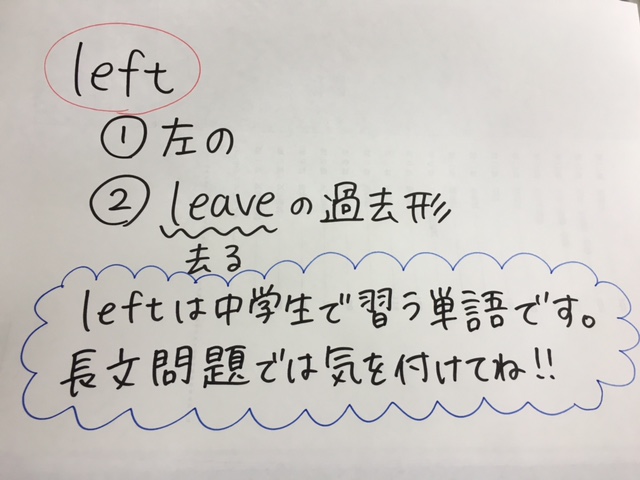 left
① 左の
② leaveの過去形
去る
leftは中学生で習う単語です。
長文問題では気を付けてね!!